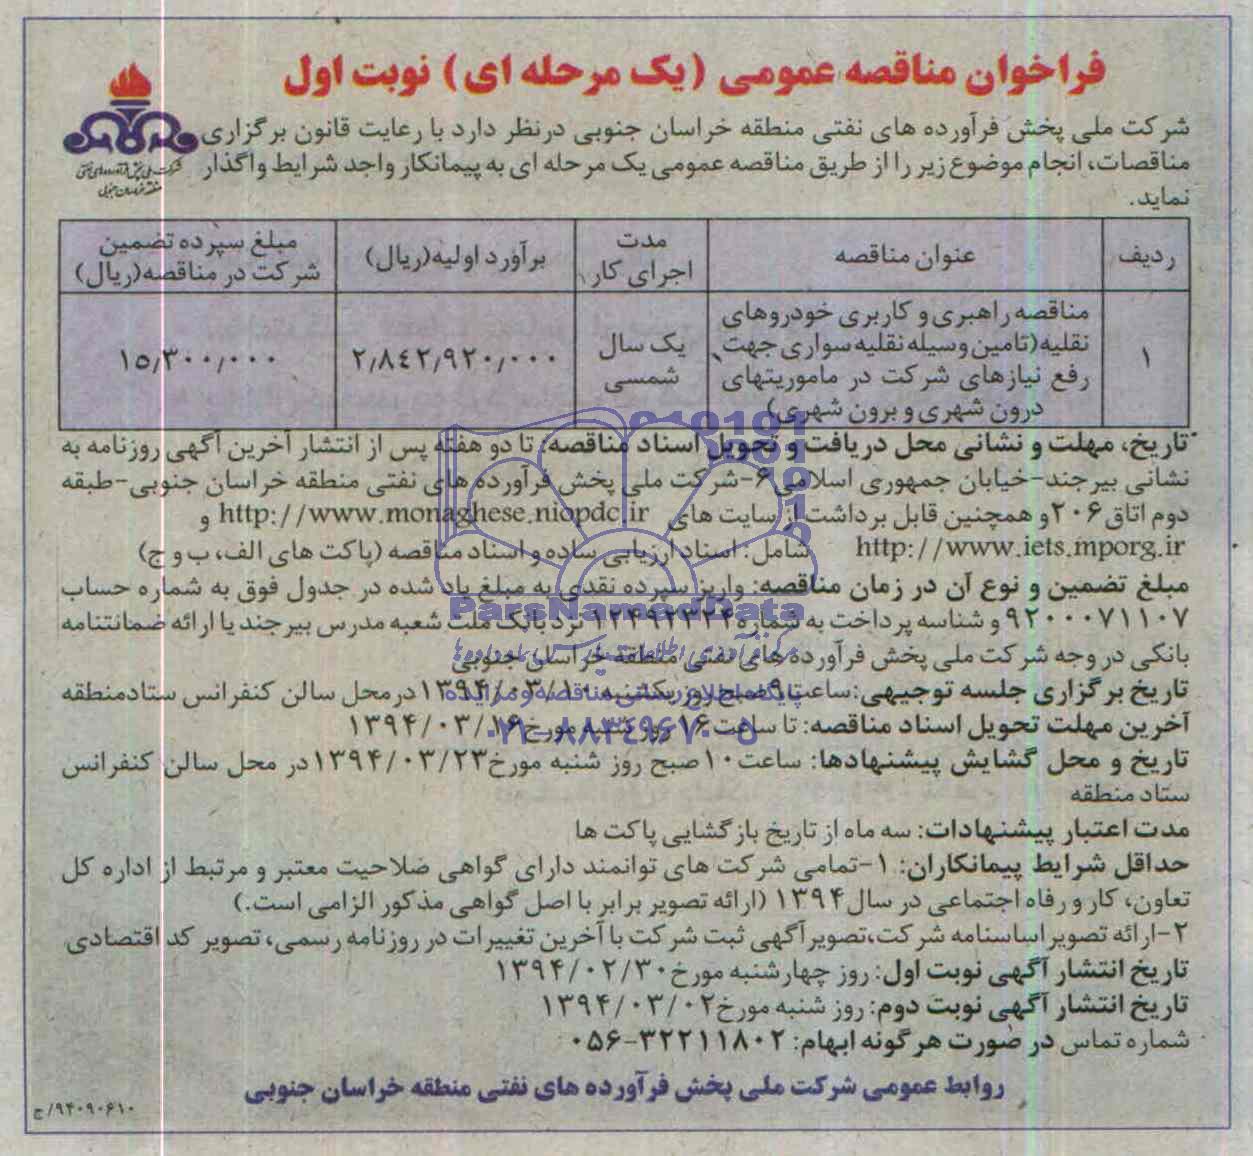 فراخوان مناقصه عمومی (یک مرحله ای) نوبت اول
شرکت ملی پخش فرآورده های نفتی
منطقه خراسان جنوبی
شرکت ملی پخش فرآورده های نفتی منطقه خراسان جنوبی درنظر دارد با رعایت قانون برگزاری
مناقصات، انجام موضوع زیر را از طریق مناقصه عمومی یک مرحله ای به پیمانکار واجد شرایط واگذار
نماید.
ردیف	عنوان مناقصه	مدت اجرای کار	برآورد اولیه(ریال)	مبلغ سپرده تضمین شرکت در مناقصه(ریال)
۱	مناقصه راهبری و کاربری خودروهای نقلیه(تامین وسیله نقلیه سواری جهت رفع نیازهای شرکت در ماموریتهای درون شهری و برون شهری)	یک سال شمسی	۲٫۸۴۲٫۹۲۰٫۰۰۰	۱۵٫۳۰۰٫۰۰۰
تاریخ، مهلت و نشانی محل دریافت و تحویل اسناد مناقصه: تا دو هفته پس از انتشار آخرین آگهی روزنامه به
نشانی بیرجند-خیابان جمهوری اسلامی۶-شرکت ملی پخش فرآورده های نفتی منطقه خراسان جنوبی-طبقه
دوم اتاق۲۰۶و همچنین قابل برداشت از سایت های http://www.monaghese.niopdc.ir و
http://www.iets.mporg.ir شامل: اسناد ارزیابی ساده و اسناد مناقصه (پاکت های الف، ب و ج)
مبلغ تضمین و نوع آن در زمان مناقصه: واریز سپرده نقدی به مبلغ یاد شده در جدول فوق به شماره حساب
۹۲۰۰۰۷۱۱۰۷ و شناسه پرداخت به شماره۱۲۴۹۲۳۲۴ نزد بانک ملت شعبه مدرس بیرجند یا ارائه ضمانتنامه
بانکی در وجه شرکت ملی پخش فرآورده های نفتی منطقه خراسان جنوبی
تاریخ برگزاری جلسه توجیهی: ساعت۹صبح روز یکشنبه ۱۳۹۴/۰۳/۱۰درمحل سالن کنفرانس ستادمنطقه
آخرین مهلت تحویل اسناد مناقصه: تا ساعت۱۶ روز شنبه مورخ۱۳۹۴/۰۳/۱۶
تاریخ و محل گشایش پیشنهادها: ساعت۱۰صبح روز شنبه مورخ۱۳۹۴/۰۳/۲۳در محل سالن کنفرانس
ستاد منطقه
مدت اعتبار پیشنهادات: سه ماه از تاریخ بازگشایی پاکت ها
حداقل شرایط پیمانکاران: ۱-تمامی شرکت های توانمند دارای گواهی صلاحیت معتبر و مرتبط از اداره کل
تعاون، کار و رفاه اجتماعی در سال۱۳۹۴ (ارائه تصویر برابر با اصل گواهی مذکور الزامی است.)
۲-ارائه تصویر اساسنامه شرکت،تصویرآگهی ثبت شرکت با آخرین تغییرات در روزنامه رسمی، تصویر کد اقتصادی
تاریخ انتشار آگهی نوبت اول: روز چهارشنبه مورخ۱۳۹۴/۰۲/۳۰
تاریخ انتشار آگهی نوبت دوم: روز شنبه مورخ۱۳۹۴/۰۳/۰۲
شماره تماس در صورت هرگونه ابهام: ۳۲۲۱۱۸۰۲-۰۵۶
روابط عمومی شرکت ملی پخش فرآورده های نفتی منطقه خراسان جنوبی
۹۴۰۹۰۶۱۰/ج
ParsNamadData
پایگاه اطلاع رسانی مناقصه و مزایده
۰۲۱-۸۸۳۴۹۶۷۰-۵